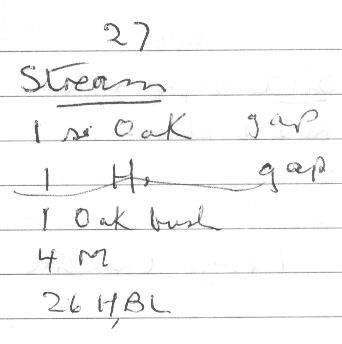 27
Stream
1 si Oak gap
1 H. gap
1 Oak bush
4 M
26 H, BL